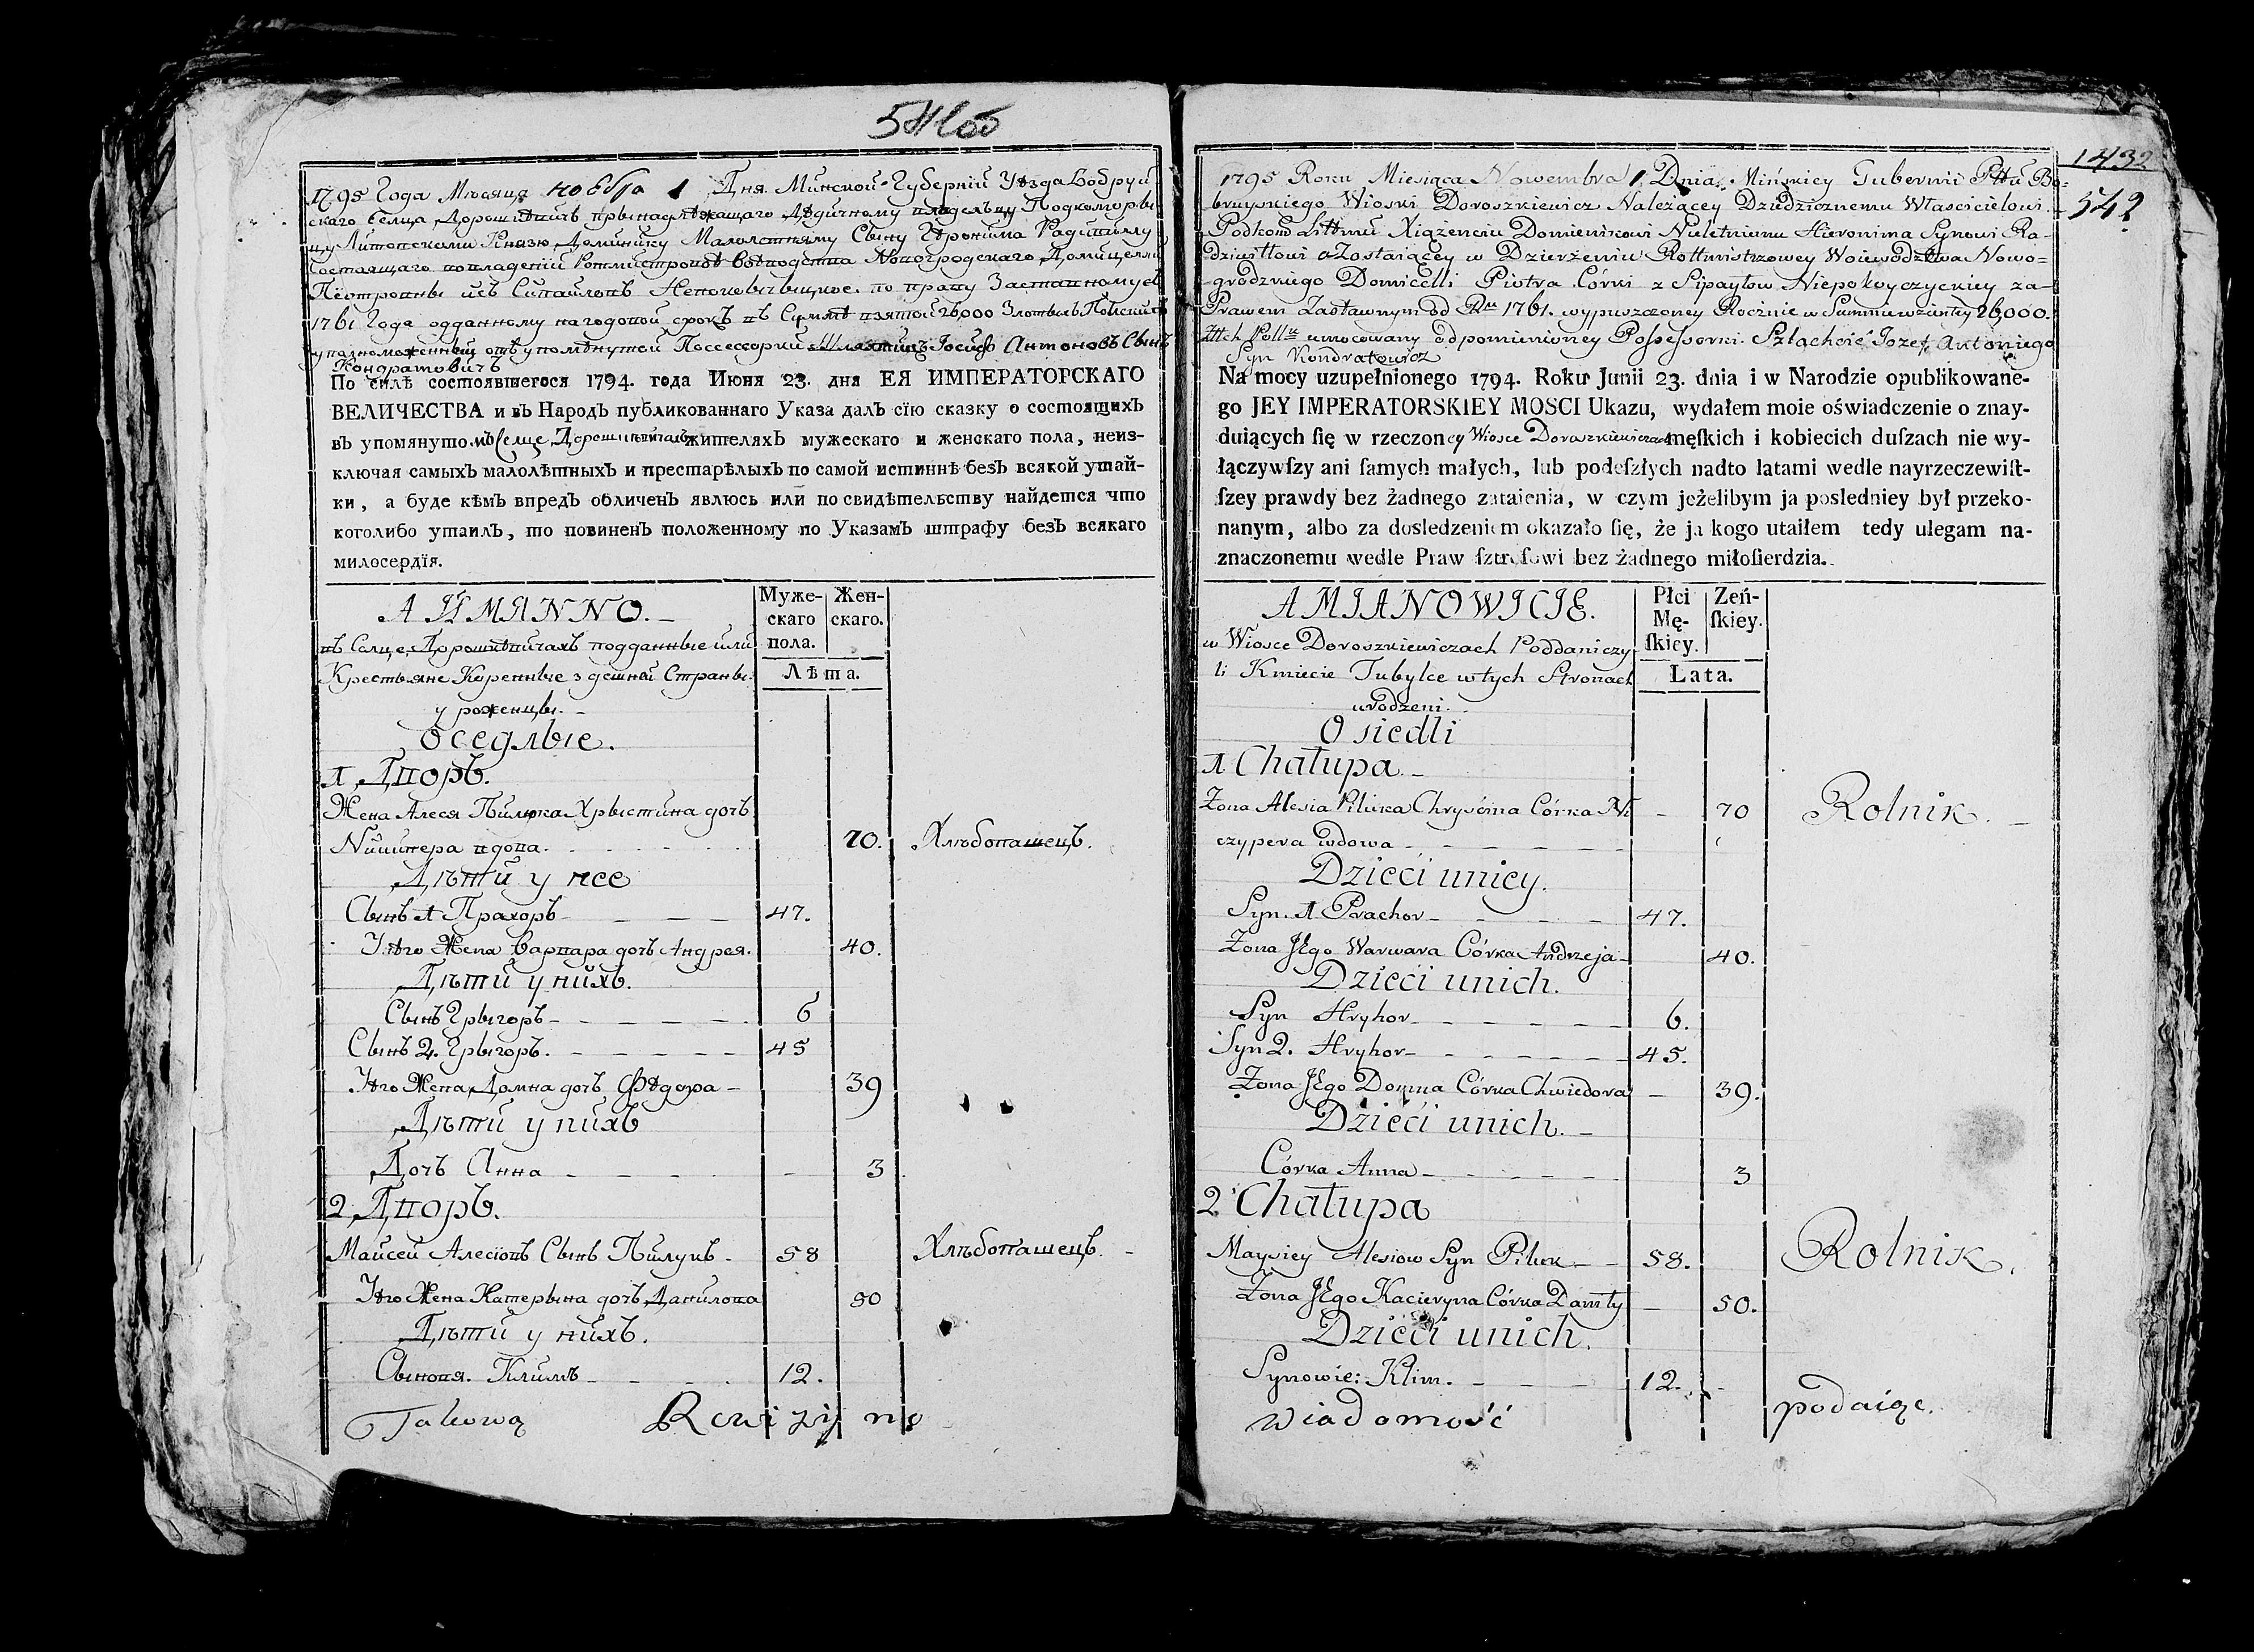 1795 Года Мѣсяца ноября 1 Дня Минской Губерніи Уѣзда Бобруй
скаго Селца Дорошкѣвичъ прынадлѣжащаго Дѣдичному владѣльцу Подкоморы
цу Литовскому Князю Доминику Малолетнему Сыну Геронима Радивилу
состоящаго повладеніи Ротмистровой Воеводства Новогродскаго Домицелли
Пётровны изъ Сипайловъ Непокойчыцкое по праву Заставному съ
1761 Года одданному нагодовой срокъ въ Суммѣ взятой 26,000 Злотыхъ Полскихъ
уполноможенный отъ упомѣнутей Поссессорки Шляхтичъ Іосифъ Антоновъ Сынъ
Кондратовичъ
По силѣ состоявшегося 1794. года Июня 23. дня ЕЯ ИМПЕРАТОРСКАГО
ВЕЛИЧЕСТВА и въ Народъ публикованнаго Указа далъ сїю сказку о состоящихъ
въ упомянутомъ Селце Дорошкѣвичахъ жителяхъ мужескаго и женскаго пола, неиз-
ключая самыхъ малолѣтныхъ и престарѣлыхъ по самой истиннѣ безъ всякой утай-
ки, а буде кѣмъ впредъ обличенъ явлюсь или по свидѣтельству найдется что
коголибо утаилъ, то повиненъ положенному по Указамъ штрафу безъ всякаго
милосердїя.
А ИМЯННО.
Муже-
скаго
пола.
Жен-
скаго.
Лѣта.
въ Селце Дорошкѣвичахъ подданные или
Крестьяне Коренные здешней Страны
уроженцы.
Оседлые.
1 Дворъ.
Жена Алеся Пилюка Хрыстина дочъ
Ничипера вдова. 70. Хлѣбопашецъ.
Дѣти у нее
Сынъ 1 Прахоръ 47.
Его Жена Варвара дочъ Андрея. 40.
Дѣти у нихъ.
Сынъ Грыгоръ 6
Сынъ 2. Грыгоръ. 45
Его Жена Домна дочъ Фѣдора 39
Дѣти у нихъ
Дочъ Анна 3
2 Дворъ.
Майсей Алесіовъ Сынъ Пилукъ 58 Хлѣбопашецъ.
Его Жена Катерына дочъ Данилова 50
Дѣти у нихъ.
Сыновя. Климъ 12.
Takową Rewizyiną
1432
542
1795 Roku Miesiąca Nowembra 1 Dnia Mińskiey Gubernii Pttu Bo-
bruyskiego Wioski Doroszkiewicz Należącey Dziedzicznemu Właścicielowi
Podkom Littmu Xiążenciu Dominikowi Nieletniemu Hieronima Synowi Ra-
dziwiłłowi a Zostaiącey w Dzierżeniu Rottmistrzowey Woiewodztwa Nowo-
grodzkiego Domicelli Piotra Córki z Sipayłow Niepokoyczyckiey za
Prawem Zastawnym od Ru 1761. wypuszczoney Rocznie w Summie wziętey 26,000.
Złłch Poll umocowany od pomienioney Possessorki Szlachcic Jozef Antoniego
Syn Kondratowicz
Na mocy uzupełnionego 1794. Roku Junii 23. dnia i w Narodzie opublikowane-
go JEY IMPERATORSKIEY MOSCI Ukazu, wydałem moie oświadczenie o znay-
duiących ſię w rzeczoney Wiosce Doroszkiewiczach męſkich i kobiecich duſzach nie wy-
łączywſzy ani ſamych małych, lub podeſzłych nadto latami wedle nayrzeczewiſt-
ſzey prawdy bez żadnego zataienia, w czym jeżelibym ja posledniey był przeko-
nanym, albo za dosledzeniem okazało ſię, że ja kogo utaiłem tedy ulegam na-
znaczonemu wedle Praw ſztrofowi bez żadnego miłoſierdzia.
A MIANOWICIE.
Płci
Mę-
ſkiey.
Zeń-
ſkiey.
Lata.
w Wiosce Doroszkiewiczach Poddani czy
li Kmiecie Tubylce w tych Stronach
urodzeni.
Osiedli
1 Chałupa
Żona Alesia Piluka Chryścina Córka Ni 70 Rolnik.
czypera wdowa
Dzieci unicy.
Syn. 1 Prachor 47.
Żona JEgo Warwara Córka Andrzeja 40.
Dzieci unich.
Syn Hryhor 6.
Syn 2. Hryhor 45.
Żona JEgo Domna Córka Chwiedora 39.
Dzieci unich.
Córka Anna 3
2 Chałupa
Maysiey Alesiow Syn Piluk 58. Rolnik.
Żona JEgo Kacieryna Córka Daniły 50.
Dzieci unich.
Synowie: Klim. 12.
wiadomość podaię.